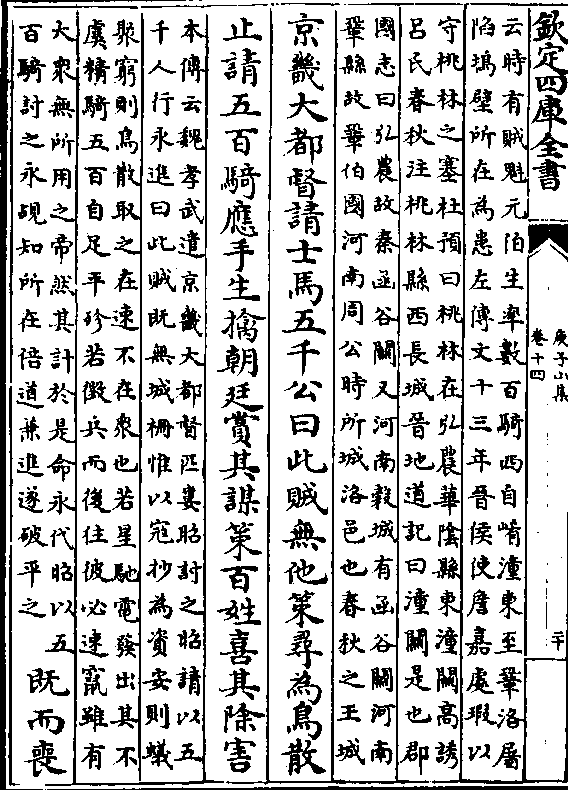 欽定四庫全書
庾子山集
卷十四
二十
云時有賊魁元伯生率數百騎西自崤潼東至鞏洛屠
陷塢壁所在為患左傳文十三年晉侯使詹嘉處瑕以
守桃林之塞杜預曰桃林在弘農華陰縣東潼關高誘
呂氏春秋注桃林縣西長城晉地道記曰潼關是也郡
國志曰弘農故秦函谷關又河南穀城有函谷關河南
鞏縣故鞏伯國河南周公時所城洛邑也春秋之王城
京畿大都督請士馬五千公曰此賊無他策尋為鳥散
止請五百騎應手生擒朝廷賞其謀策百姓喜其除害
本傳云魏孝武遣京畿大都督匹婁昭討之昭請以五
千人行永進曰此賊既無城柵惟以寇抄為資安則蟻
聚窮則鳥散取之在速不在衆也若星馳電發出其不
虞精騎五百自足平殄若徵兵而後往彼必速竄雖有
大衆無所用之帝然其計於是命永代昭以五
百騎討之永覘知所在倍道兼進遂破平之
既而喪